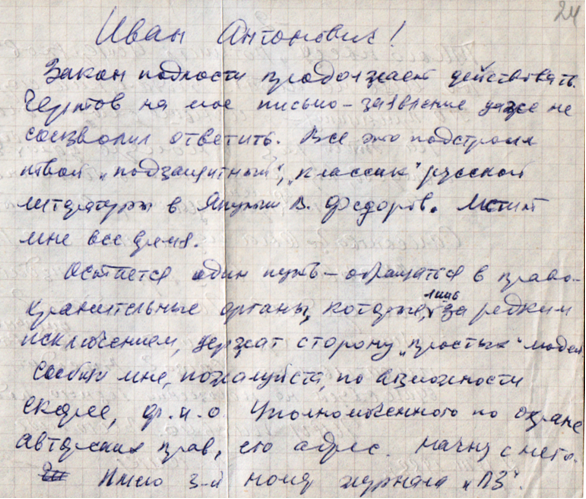 24
Иван Антонович!
Закон подлости продолжает действовать.
Чертов на мое письмо-заявление даже не
соизволил ответить. Все это подстроил
твой „подзащитный", „классик" русской
литературы в Якутии В. Федоров. Мстит
мне все время.
Остается один путь – обращаться в право-
хранительные органы, которые, лишь за редким
исключением, держат сторону „простых" людей
Сообщи мне, пожалуйста, по возможности
скорее, ф.и.о. Уполномоченного по охране
авторских прав, его адрес. Начну с него.
3-й номер журнала „ПЗ".